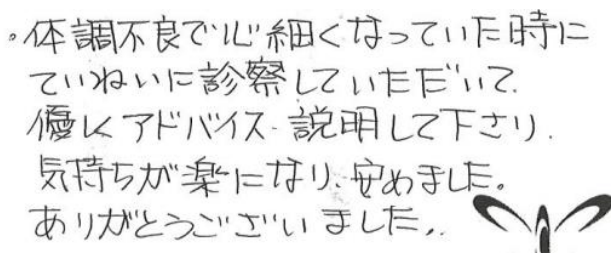 。体調不良で心細くなっていた時に
ていねいに診察していただいて、
優しくアドバイス・説明して下さり、
気持ちが楽になり、安めました。
ありがとうございました。